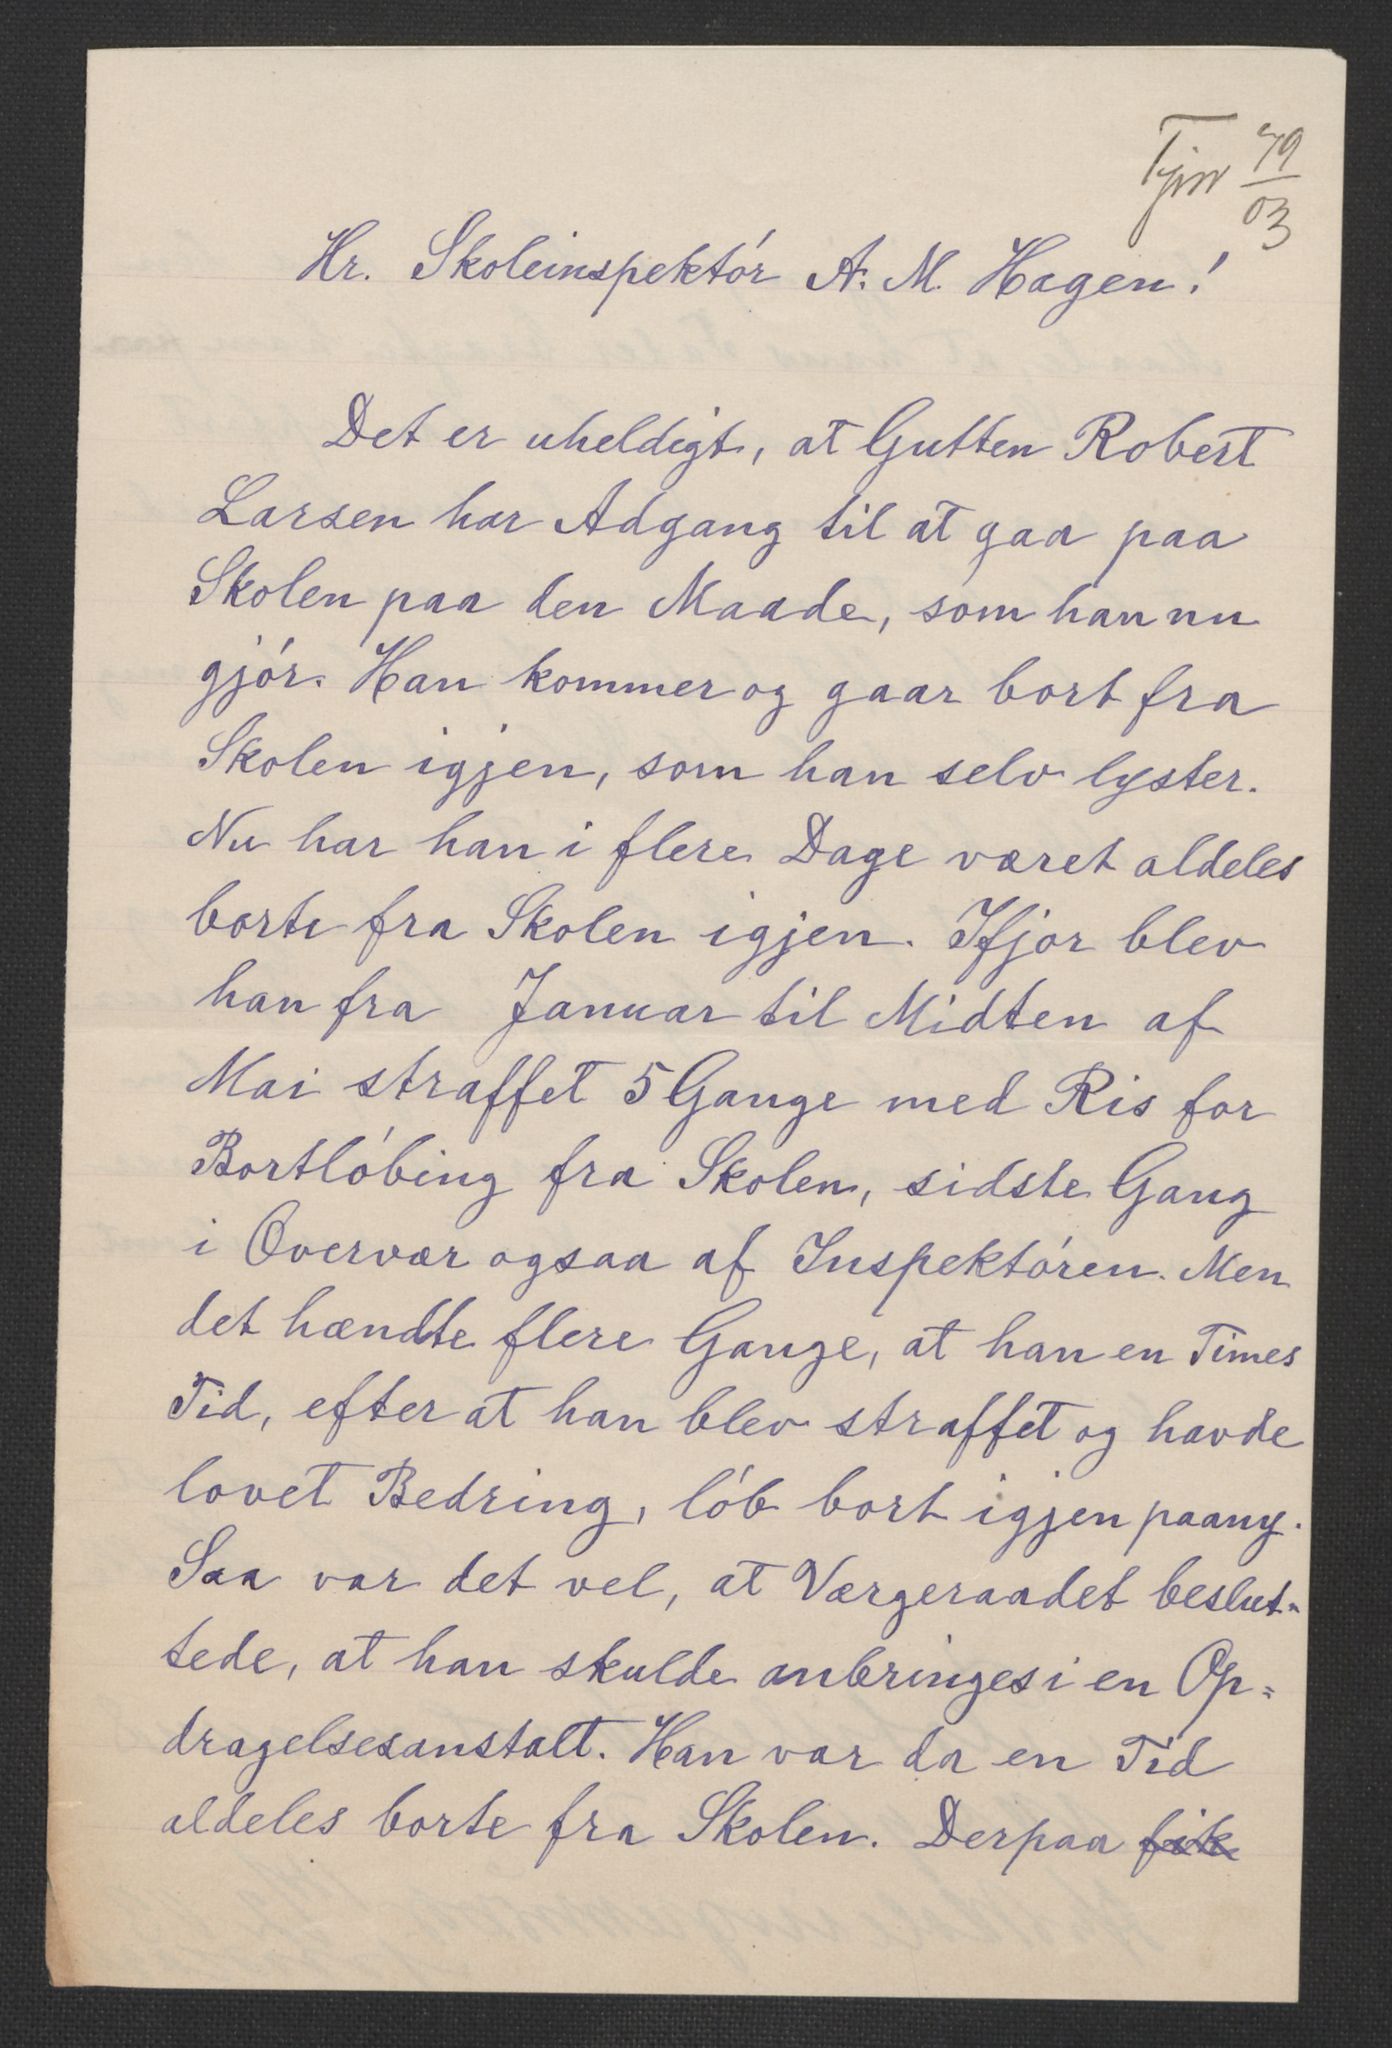 79
03
Hr. Skoleinspektór A. M. Hagen!
Det er uheldigt, at Gutten Robert
Larsen har Adgang til at gaa paa
Skolen paa den Maade, som han nu
gjór. Han kommer og gaar bort fra
Skolen igjen, som han selv lyster.
Nu har han i flere Dage været aldeles
borte fra Skolen igjen. Ifjor blev
han fra Januar til Midten af
Mai straffet 5 Gange med Ris for
Bortlóbing fra Skolen, sidste Gang
i Overvær ogsaa af Inspektóren. Men
det hændte flere Gange, at han en Times
Tid, efter at han blev straffet og havde
lovet Bedring, lób bort igjen paany.
Saa var det vel, at Værgeraadet beslut-
tede, at han skulde anbringes i en Op-
dragelsesanstalt. Han var da en Tid
aldeles borte fra Skolen. Derpaa fik